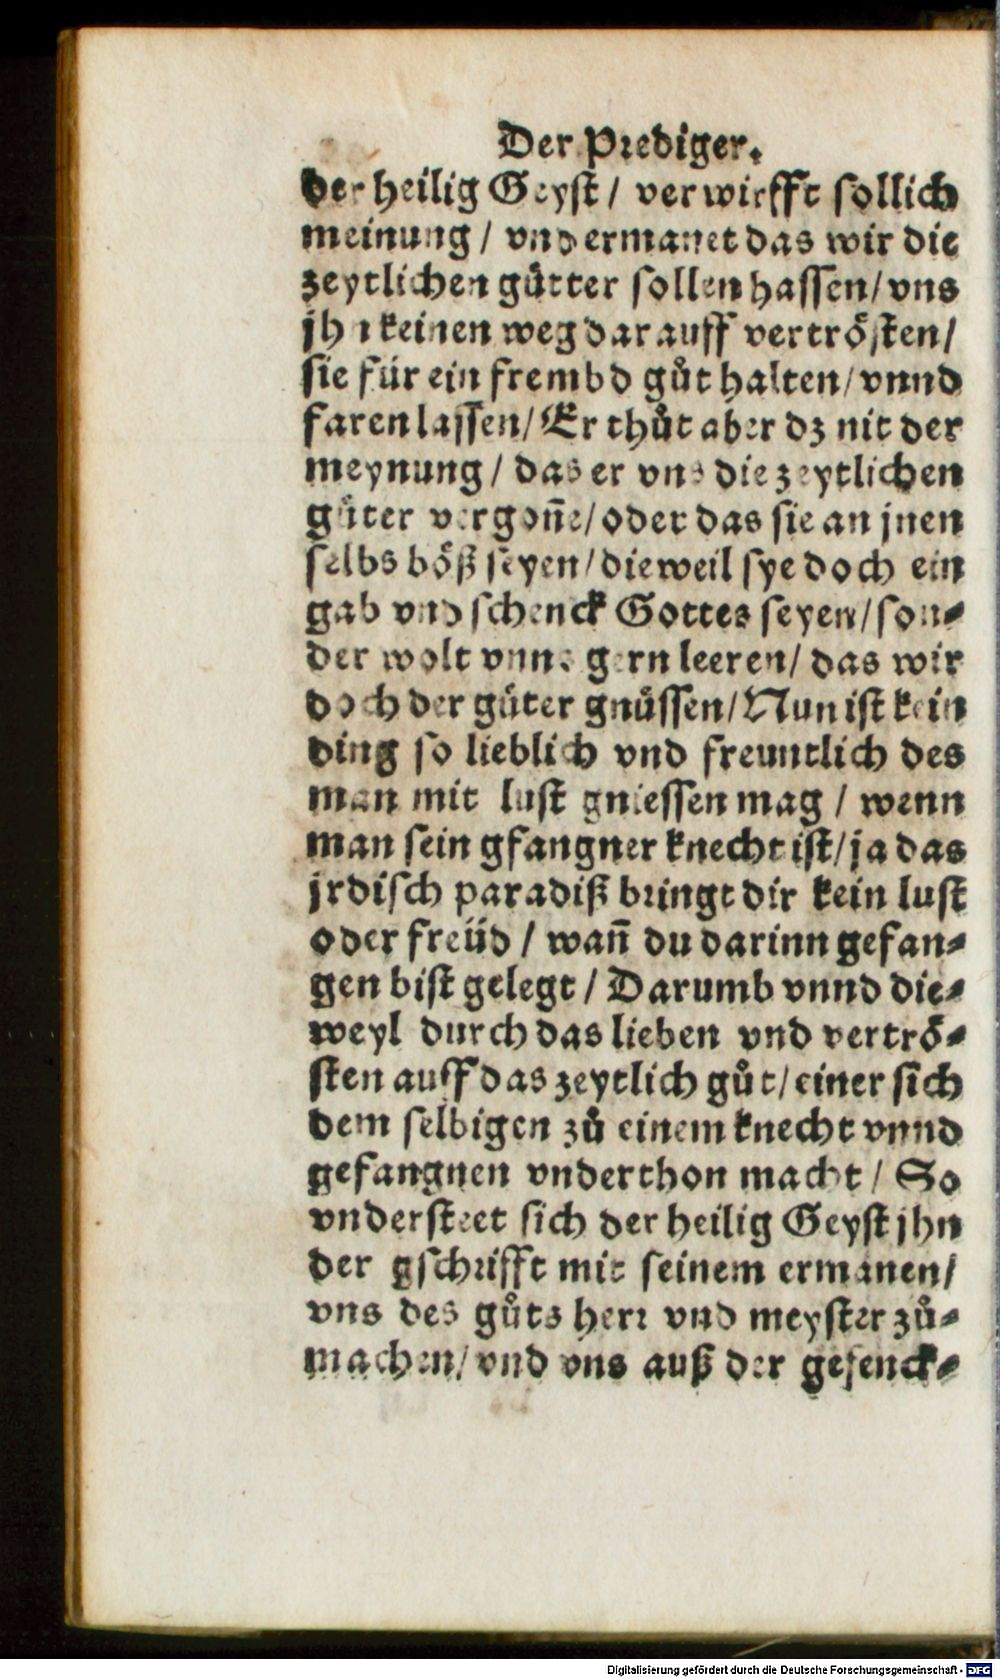 Der Prediger.
der heilig Geyst / verwirfft sollich
meinung / vnd ermanet das wir die
zeytlichen gůtter sollen hassen / vns
jhn keinen weg darauff vertrösten /
sie für ein frembd gůt halten / vnnd
faren lassen / Er thůt aber dz nit der
meynung / das er vns die zeytlichen
güter vergoñe / oder das sie an jnen
selbs böß seyen / dieweil sye doch ein
gab vnd schenck Gottes seyen / son⸗
der wolt vnns gern leeren / das wir
doch der güter gnüssen / Nun ist kein
ding so lieblich vnd freuntlich des
man mit lust gniessen mag / wenn
man sein gfangner knecht ist / ja das
jrdisch paradiß bringt dir kein lust
oder freüd / wañ du darinn gefan⸗
gen bist gelegt / Darumb vnnd die⸗
weyl durch das lieben vnd vertrö⸗
sten auff das zeytlich gůt / einer sich
dem selbigen zů einem knecht vnnd
gefangnen vnderthon macht / So
vndersteet sich der heilig Geyst jhn
der gschrifft mit seinem ermanen /
vns des gůts herr vnd meyster zů⸗
machen / vnd vns auß der gefenck⸗
Digitalisierung gefördert durch die Deutsche Forschungsgemeinschaft - DFG